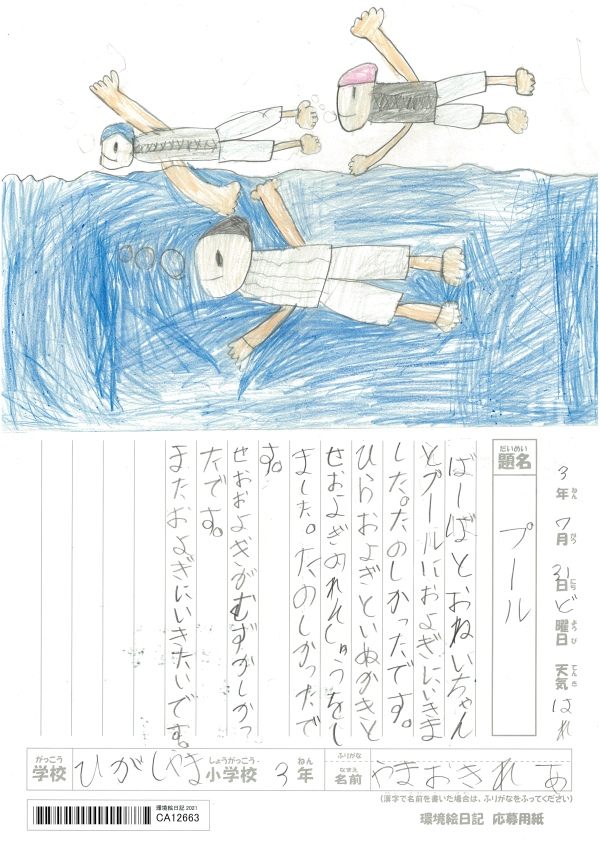 3年 7月 31日 ど曜日 天気 はれ
ねん がつ にち ようび てんき
だいめい
題名 プール
ばーばとおねいちゃん
とプールにおよぎにいきま
した。たのしかったです。
ひらおよぎといぬかきと
せおよぎのれんしゅうをし
ました。たのしかったで
す。
せおおよぎがむずかしかっ
たです。
またおよぎにいきたいです。
がっこう しょうがっこう ねん ふりがな
学校 ひがしやま 小学校 3年 なまえ 名前 やまおきれあ
(漢字で名前を書いた場合は、ふりがなをふってください)
環境絵日記 2021
CA12663
環境絵日記 応募用紙